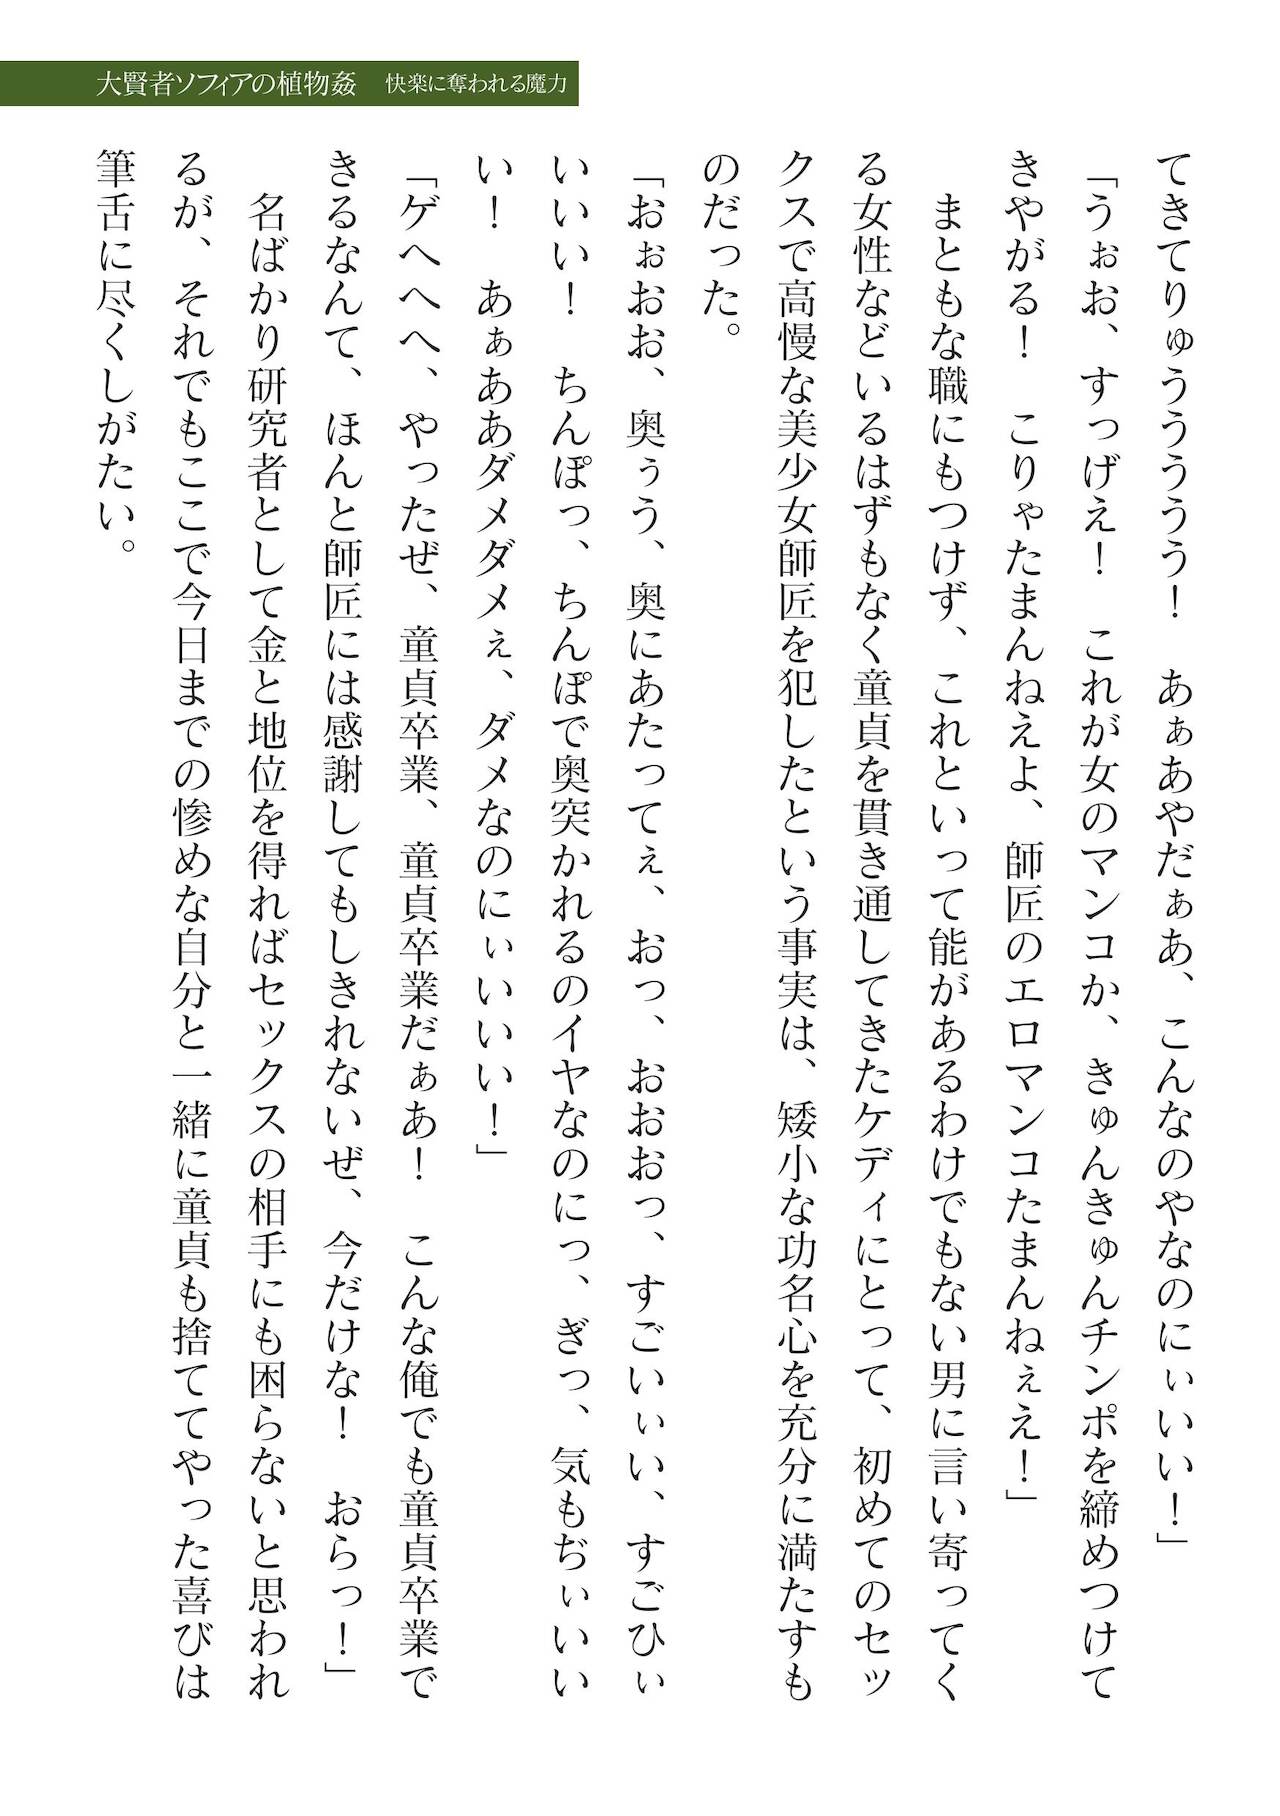 大賢者ソフィアの植物姦　快楽に奪われる魔力
てきてりゅうううう！　あぁあやだぁあ、こんなのやなのにぃいい！」
「うぉお、すっげえ！　これが女のマンコか、きゅんきゅんチンポを締めつけて
きやがる！　こりゃたまんねえよ、師匠のエロマンコたまんねぇえ！」
　まともな職にもつけず、これといって能があるわけでもない男に言い寄ってく
る女性などいるはずもなく童貞を貫き通してきたケディにとって、初めてのセッ
クスで高慢な美少女師匠を犯したという事実は、矮小な功名心を充分に満たすも
のだった。
「おぉおお、奥ぅう、奥にあたってぇ、おっ、おおおっ、すごいぃい、すごひぃ
いいい！　ちんぽっ、ちんぽで奥突かれるのイヤなのにっ、ぎっ、気もぢぃいい
い！　あぁああダメダメぇ、ダメなのにぃいいい！」
「ゲヘヘへ、やったぜ、童貞卒業、童貞卒業だぁあ！　こんな俺でも童貞卒業で
きるなんて、ほんと師匠には感謝してもしきれないぜ、今だけな！　おらっ！」
　名ばかり研究者として金と地位を得ればセックスの相手にも困らないと思われ
るが、それでもここで今日までの惨めな自分と一緒に童貞も捨ててやった喜びは
筆舌に尽くしがたい。